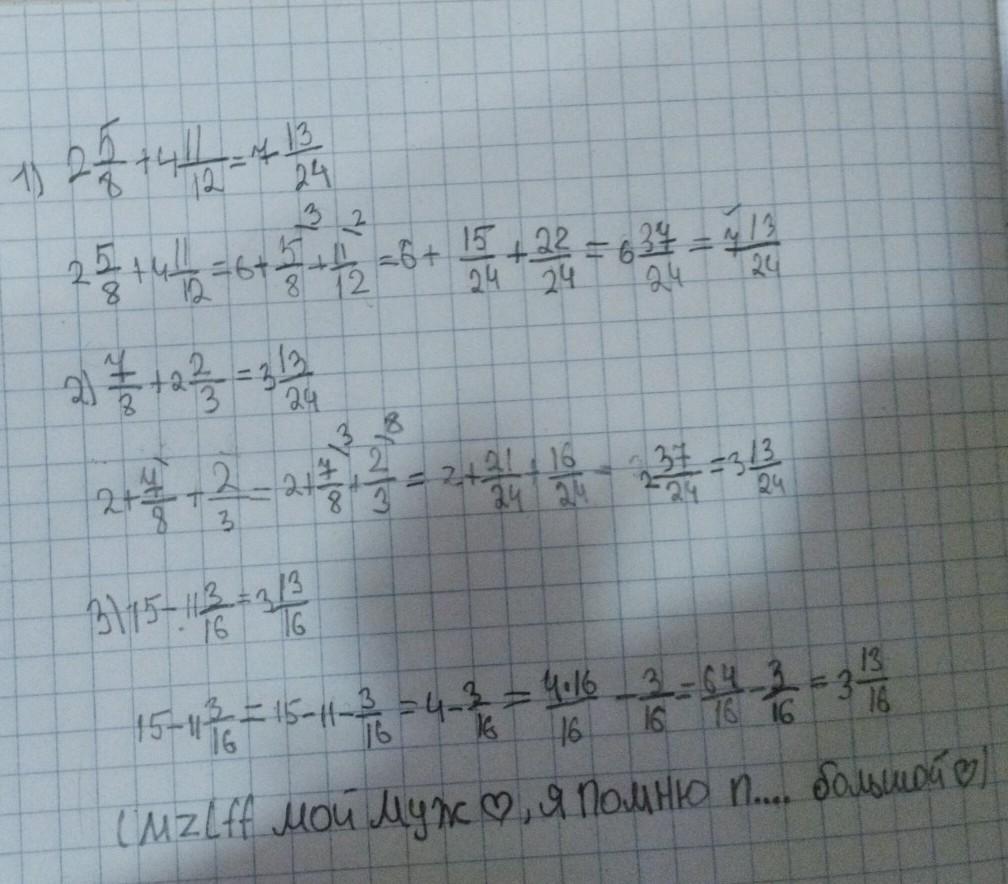 1) 2 5/8 + 4 11/12 = 7 13/24
2 5/8 + 4 11/12 = 6 + 5/8 \3 + 11/12 \2 = 6 + 15/24 + 22/24 = 6 37/24 = 7 13/24
2) 7/8 + 2 2/3 = 3 13/24
2 + 7/8 + 2/3 = 2 + 7/8 \3 + 2/3 \8 = 2 + 21/24 + 16/24 = 2 37/24 = 3 13/24
3) 15 - 11 3/16 = 3 13/16
15 - 11 3/16 = 15 - 11 - 3/16 = 4 - 3/16 = 4·16/16 - 3/16 = 64/16 - 3/16 = 3 13/16
(MZLff мой муж ♡, я помню п.... большой ♡)